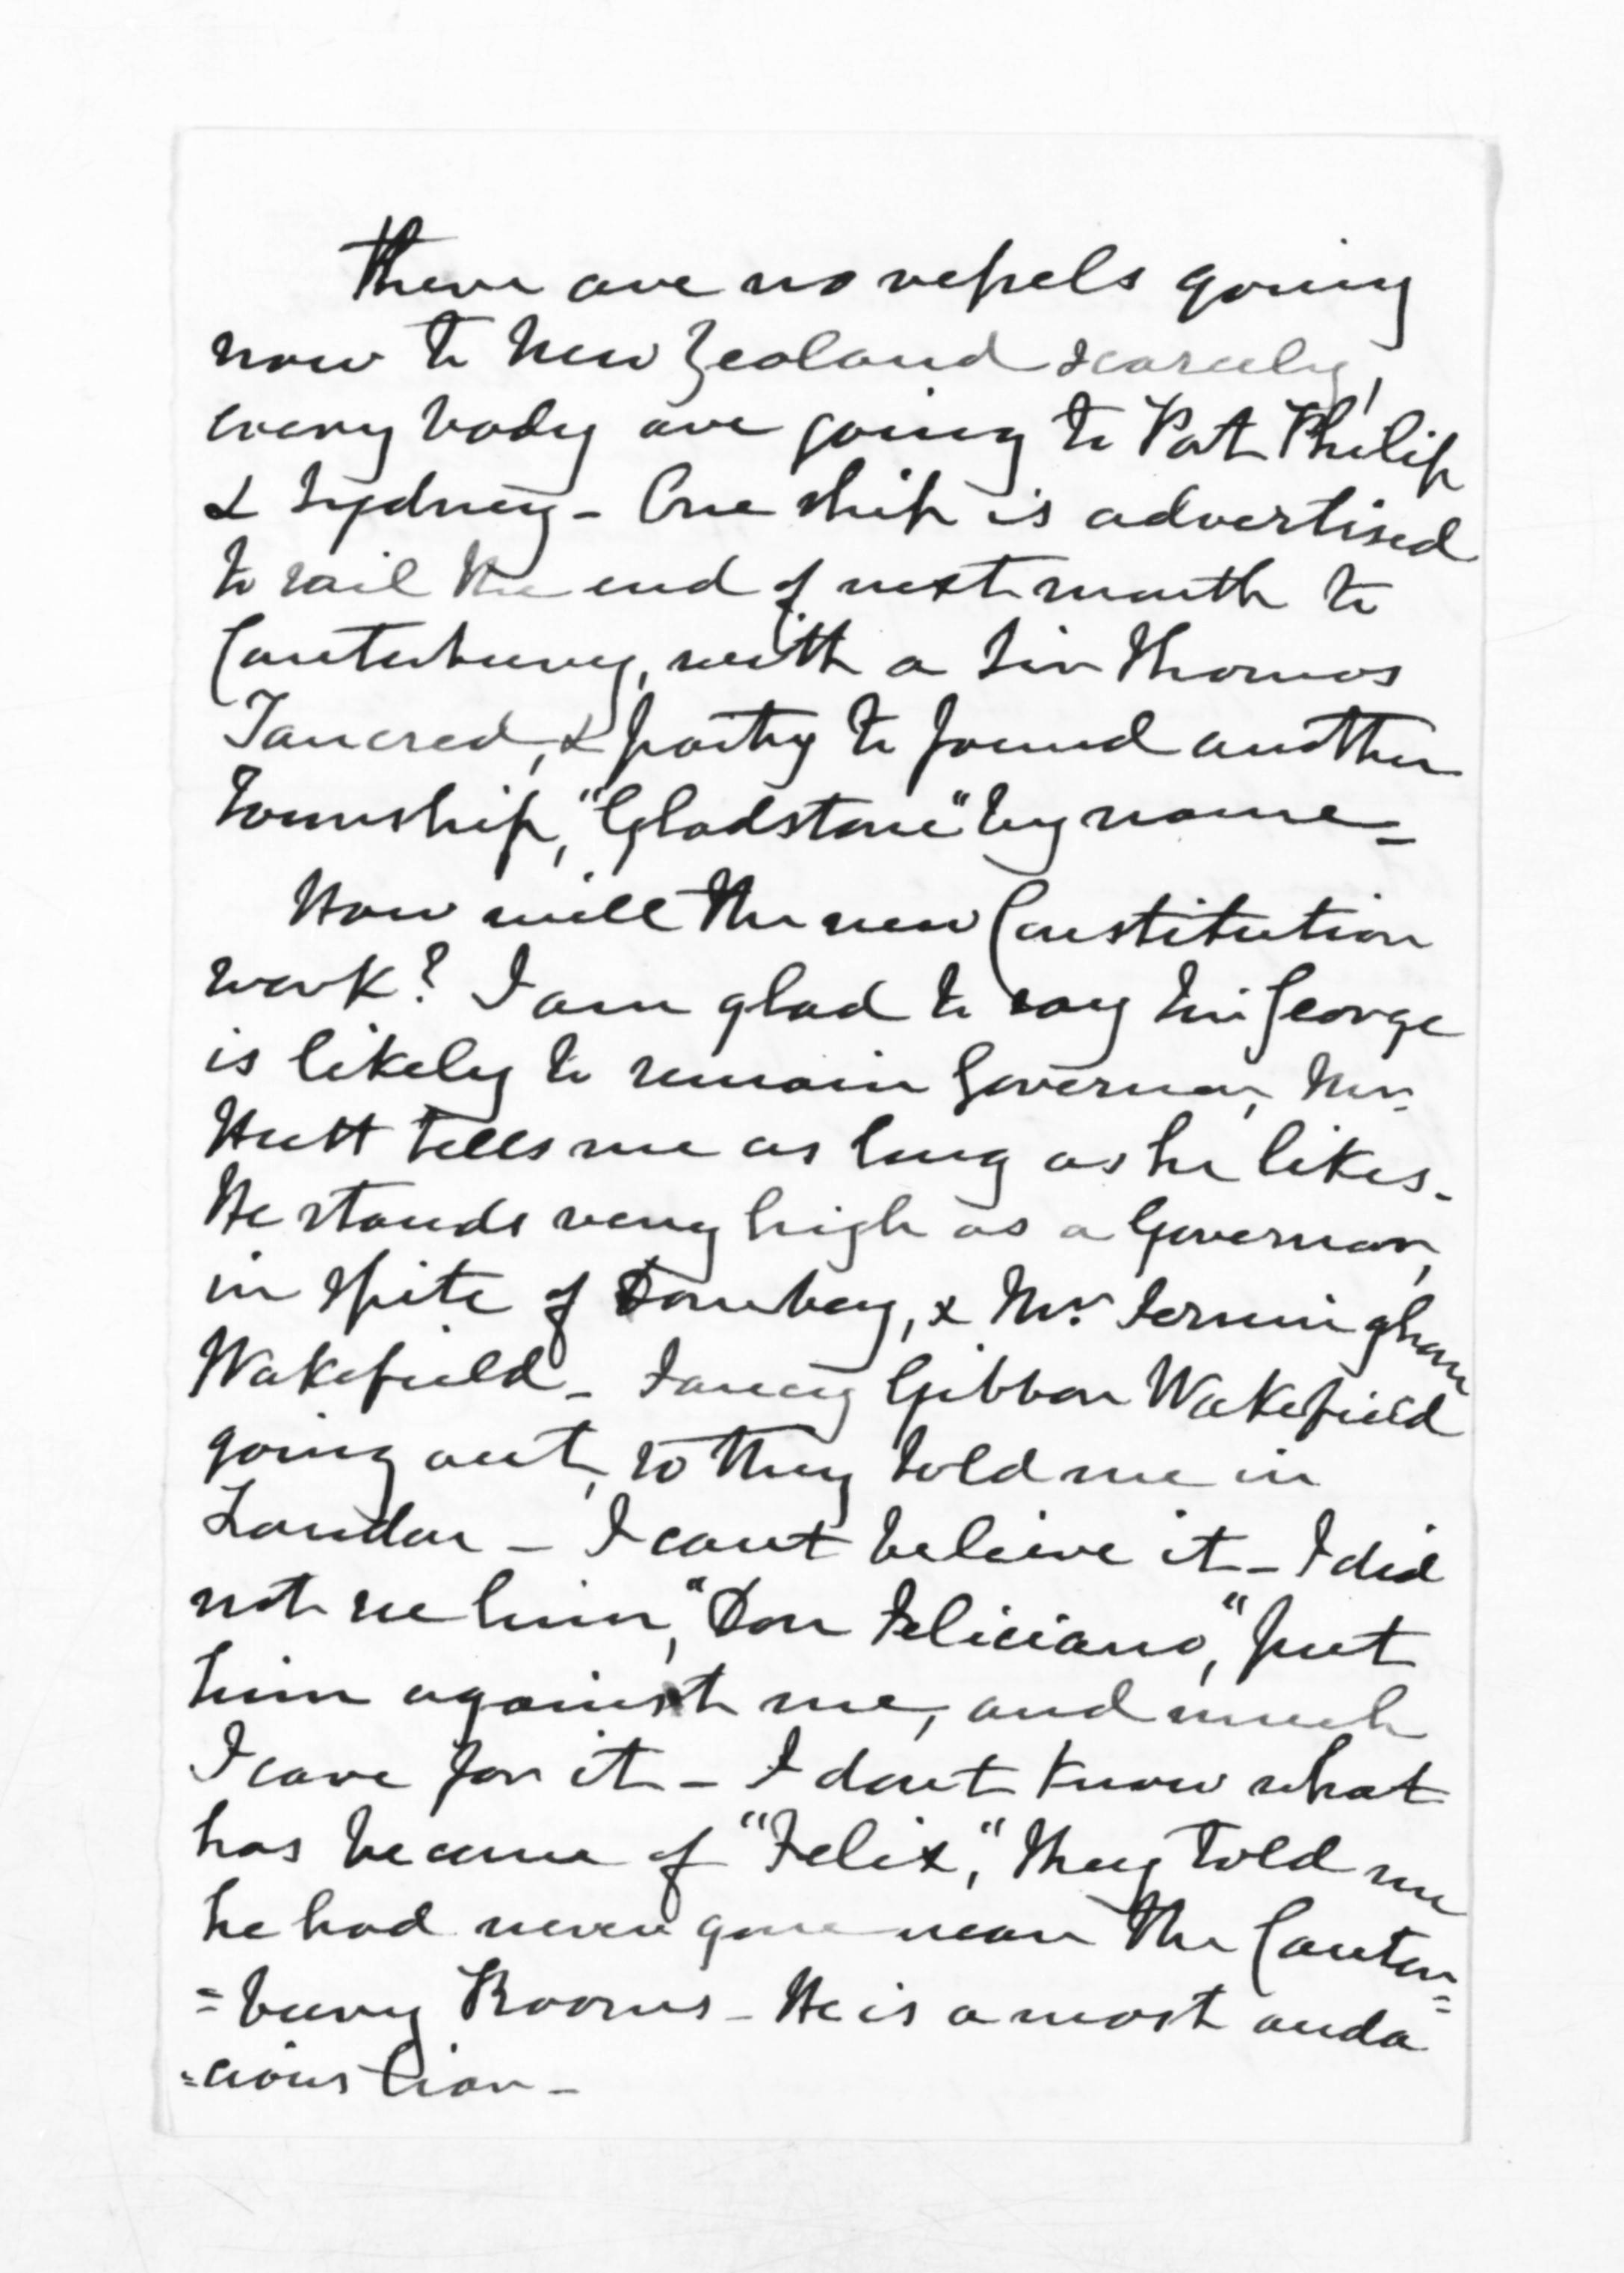 There are no vessels going
now to New Zealand scarcely,
every body are going to Port Philip
& Sydney - One ship is advertised
to sail the end of next month to
Canterbury, with a Sir Thomas
Tancred, & party to found another
township, "Gladstone" by name -
How will the new Constitution
work? I am glad to say Sir George
is likely to remain Governor, Mr.
Hutt tells me as long as he likes -
He stands very high as a Governor,
in spite of Dombey, & Mr. Jerningham
Wakefield - Fancy Gibbon Wakefield
going out, so they told me in
London - I cant believe it - I did
not see him, "Don Feliciano," put
him against me, and much
I care for it - I dont know what
has become of "Felix," they told me
he had never gone near the Canter=
=bury Rooms - He is a most auda
=cious liar -